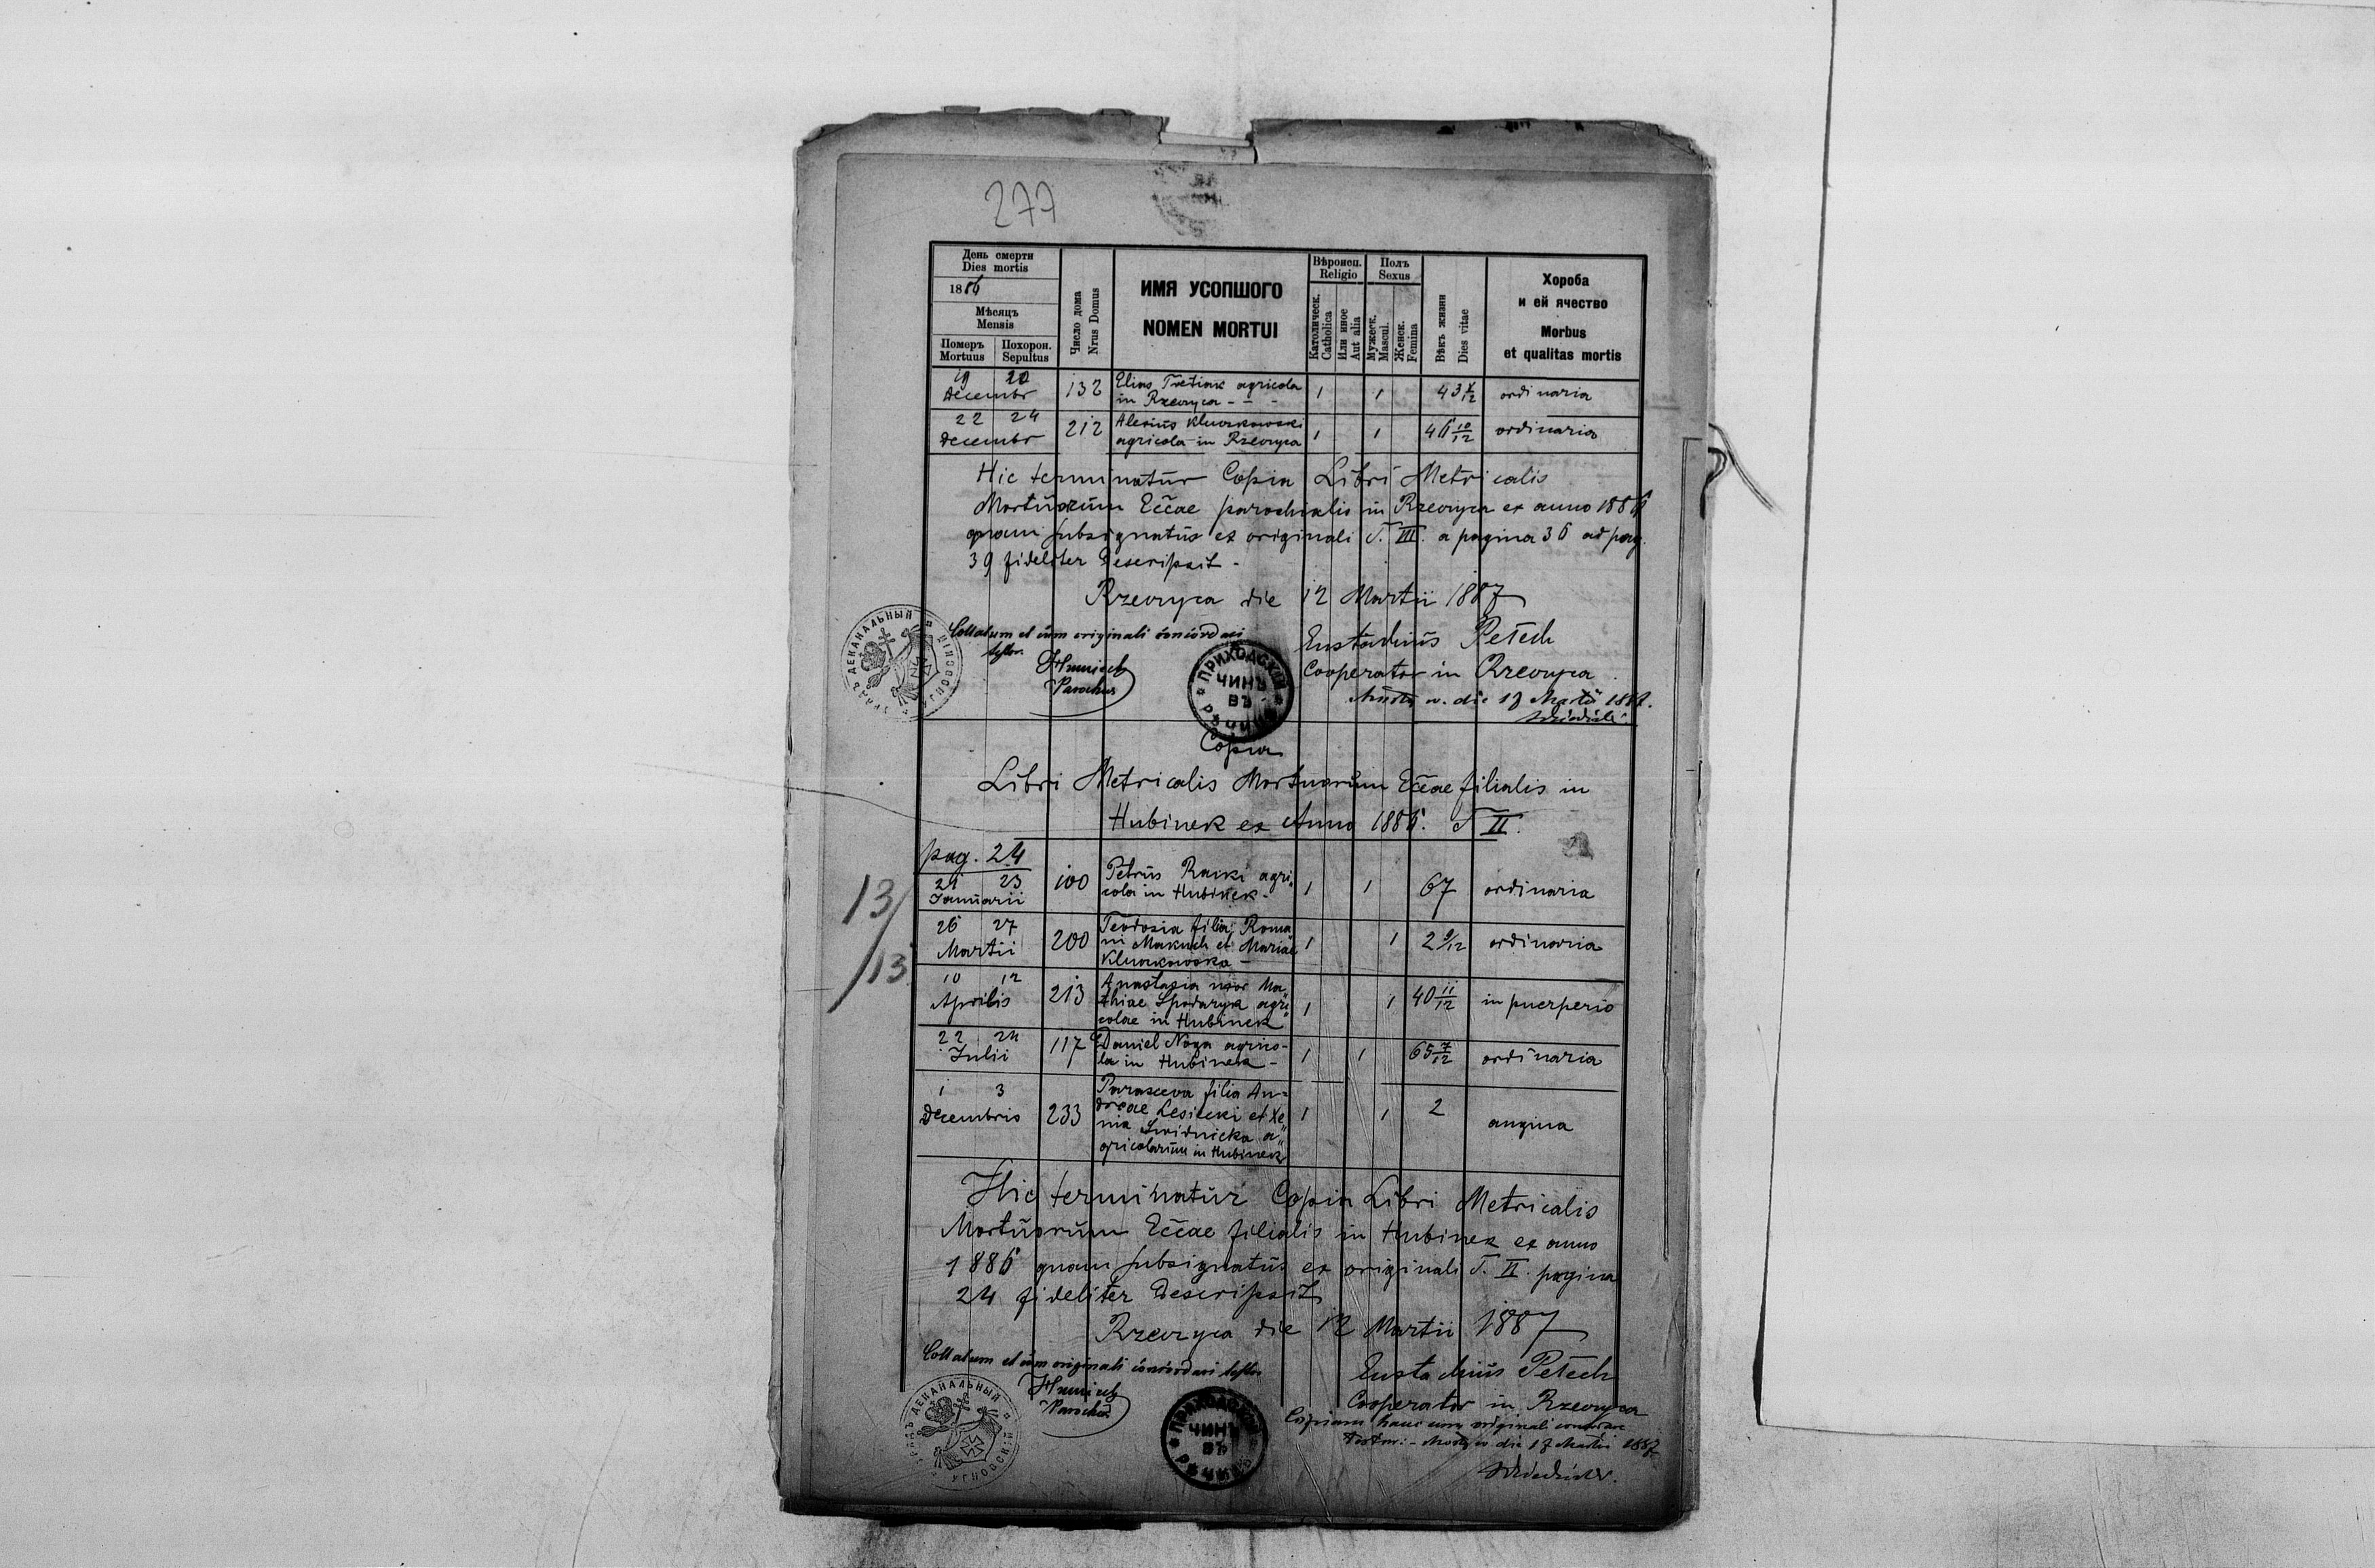 277
День смерти
Dies mortis
1886
Мѣсяцъ
Mensis
Померъ Mortuus
Похорон. Sepultus
Число дома
Nrus Domus
ИМЯ УСОПШОГО
NOMEN MORTUI
Вѣроисп.
Religio
Католическ.
Catholica
Или иное
Aut alia
Полъ
Sexus
Мужеск.
Mascul.
Женск.
Femina
Вѣкъ жизни
Dies vitae
Хороба
и ей ячество
Morbus
et qualitas mortis
19 20 Decembr 132 Elias Tretiak agricola in Rzeczyca - - - 1 1 43 /12 ordinaria
22 24 Decembr 212 Alexius Kluczkowski agricola in Rzeczyca 1 1 46 10/12 ordinaria
Hic terminatur Copia Libri Metricalis
Mortuorum Eccae parochialis in Rzeczyca ex anno 1886
quam subsignatus ex originali T. III. a pagina 36 ad pag.
39 fideliter Descripsit -
Rzeczyca die 12 Martii 1887
Collatum et cum originali concordari
testor
Parochus
Eustachius Petech
Cooperator in Rzeczyca
die 17 Martii 1887.
ДЕКАНАЛЬНЫЙ
ПРИХОДСКІЙ
ЧИНЪ
ВЪ
РѢЧИЦѢ
Copia
Libri Metricalis Mortuorum Eccae filialis in
Hubinek ex Anno 1886. T II.
pag. 24
13/
/13
21 23 Januarii 100 Petrus Racki agricola in Hubinek - 1 1 67 ordinaria
26 27 Martii 200 Teodosia filia Romani Makuch et Mariae Kluczkowska - 1 1 2 9/12 ordinaria
10 12 Aprilis 213 Anastasia uxor Mathiae Spodaryk agricolae in Hubinek 1 1 40 11/12 in puerperio
22 24 Julii 117 Daniel Noga agricola in Hubinek - 1 1 65 7/12 ordinaria
1 3 Decembris 233 Parasceva filia Andreae Lesiecki et Xenia Swidnicka agricolarum in Hubinek 1 1 2 angina
Hic terminatur Copia Libri Metricalis
Mortuorum Eccae filialis in Hubinek ex anno
1886 quam subsignatus ex originali T. II. pagina
24 fideliter Descripsit
Rzeczyca die 12 Martii 1887
Collatum et cum originali concordari testor
Parochus
Eustachius Petech
Cooperator in Rzeczyca
Copiam hanc cum originali concordare
testor: - die 17 Martii 1887
ДЕКАНАЛЬНЫЙ
ПРИХОДСКІЙ
ЧИНЪ
ВЪ
РѢЧИЦѢ